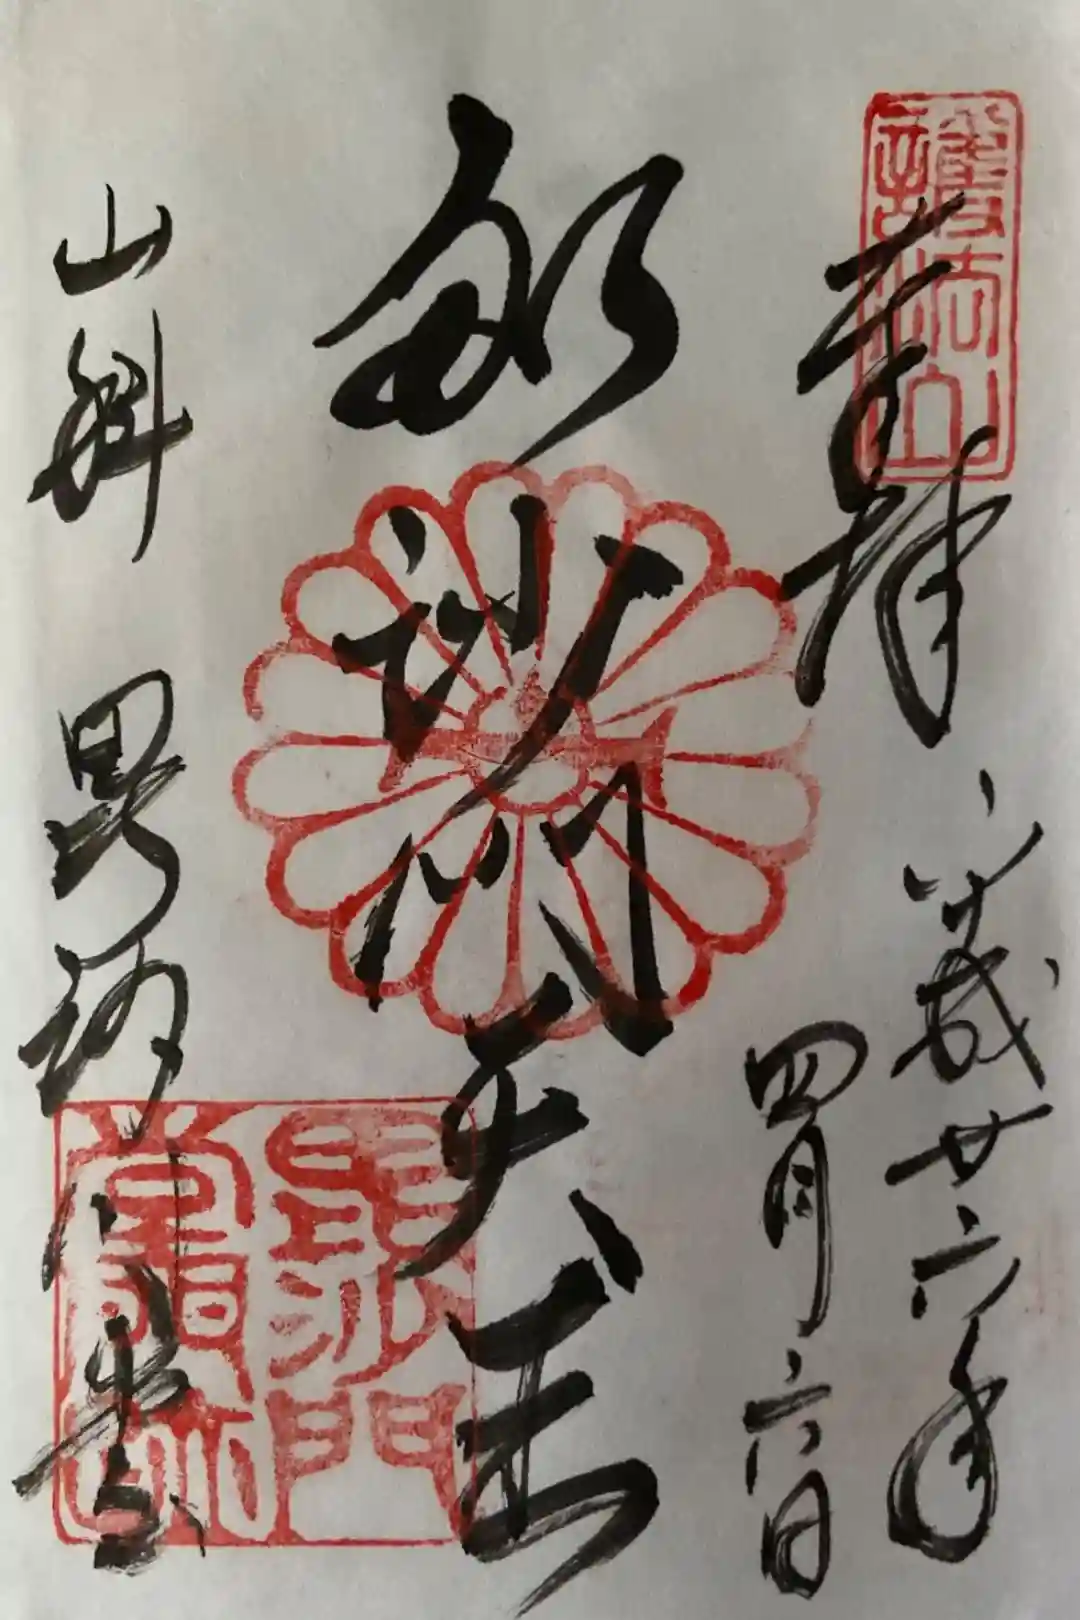 護法山
奉拝
平成廿六年
四月六日
毘沙門天王
山科 毘沙門堂